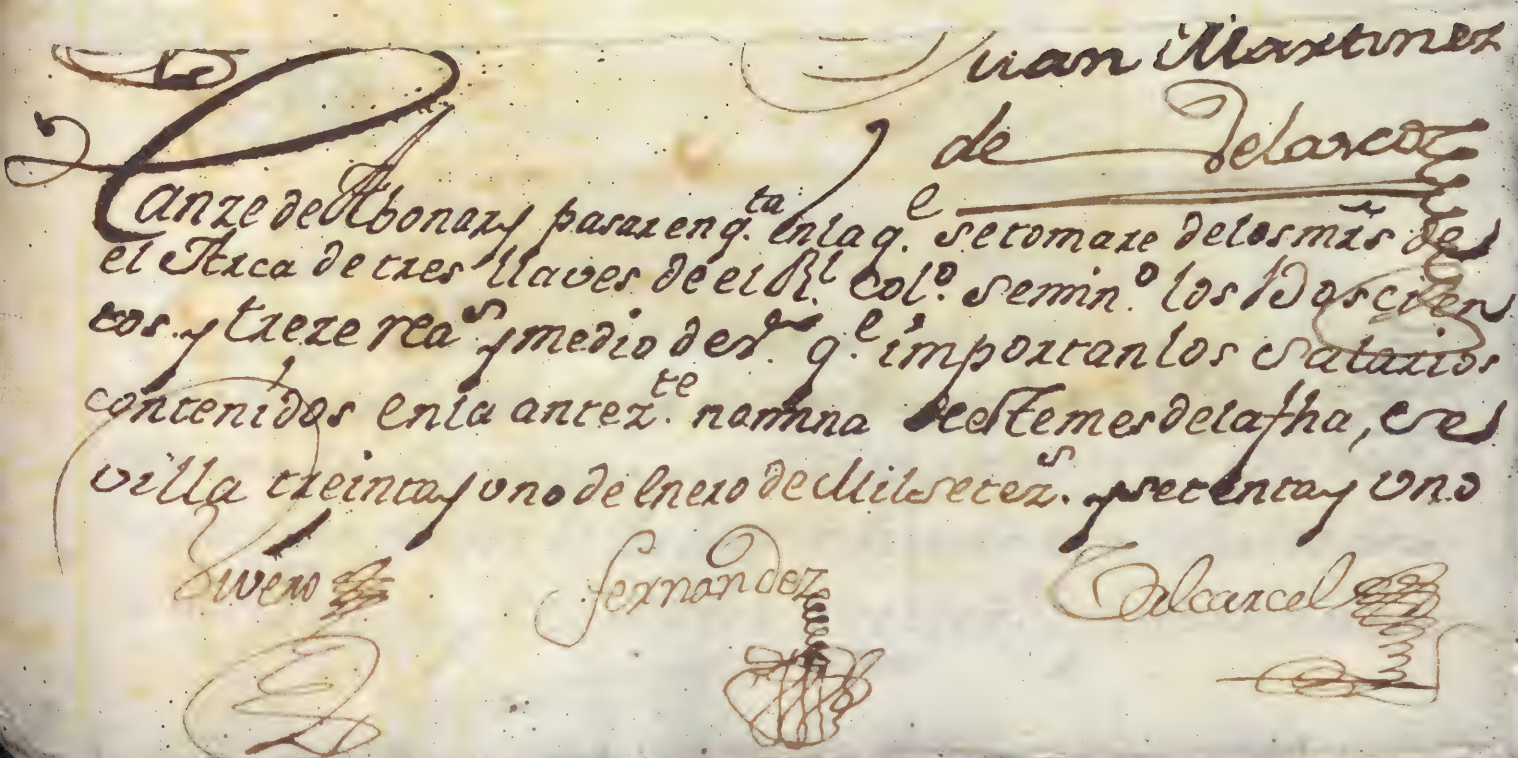 Juan Martinez
de Velasco
Canze de Abonar y pasar en q.ta en la q.e se tomare de los mrs de
el Arca de tres llaves de el Rl. Col.o Semin.o los Doscien
tos y treze rea.s y medio de v.n q.e importan los salarios
contenidos en la antez.te nomna de este mes de la fha, Se
villa treinta y uno de Enero de Mil setez.s y setenta y uno
Rivero Fernandez Valcarcel